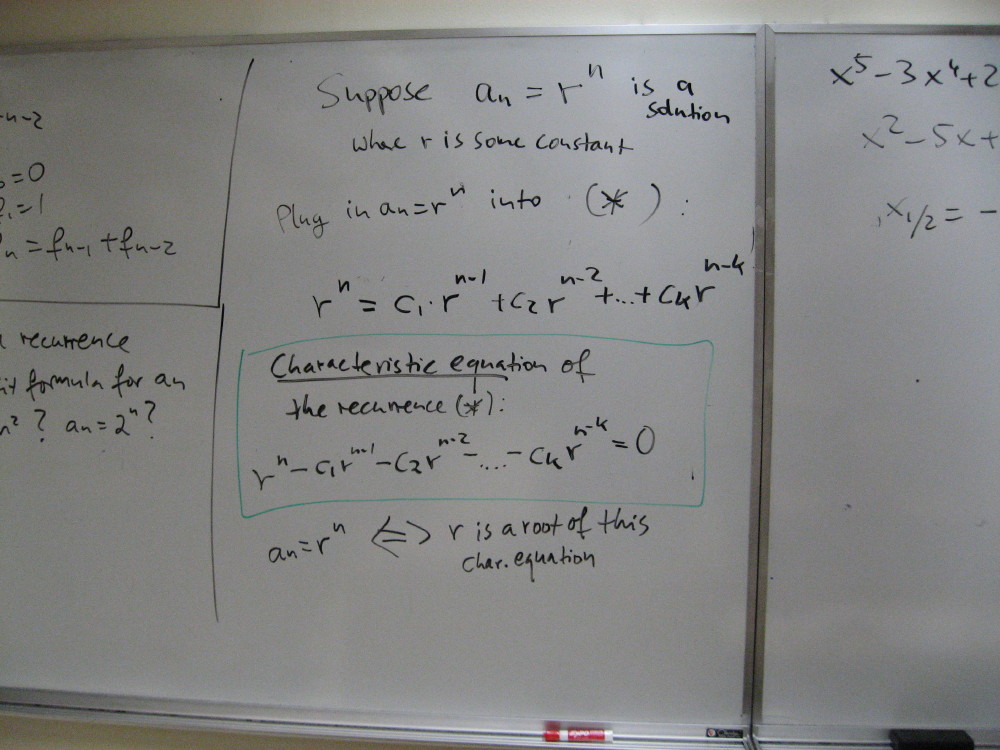 n-2
=0
f₁=1
fₙ = fₙ₋₁ + fₙ₋₂
recurrence
formula for aₙ
n² ? aₙ=2ⁿ?
Suppose aₙ = rⁿ is a
solution
where r is some constant
Plug in aₙ=rⁿ into (*):
rⁿ = c₁·rⁿ⁻¹ + c₂rⁿ⁻² +...+ cₖrⁿ⁻ᵏ
Characteristic equation of
the recurrence (*):
rⁿ - c₁rⁿ⁻¹ - c₂rⁿ⁻² - ... - cₖrⁿ⁻ᵏ = 0
aₙ=rⁿ <=> r is a root of this
char. equation
x⁵-3x⁴+2
x²-5x+
x₁/₂ = -
expo